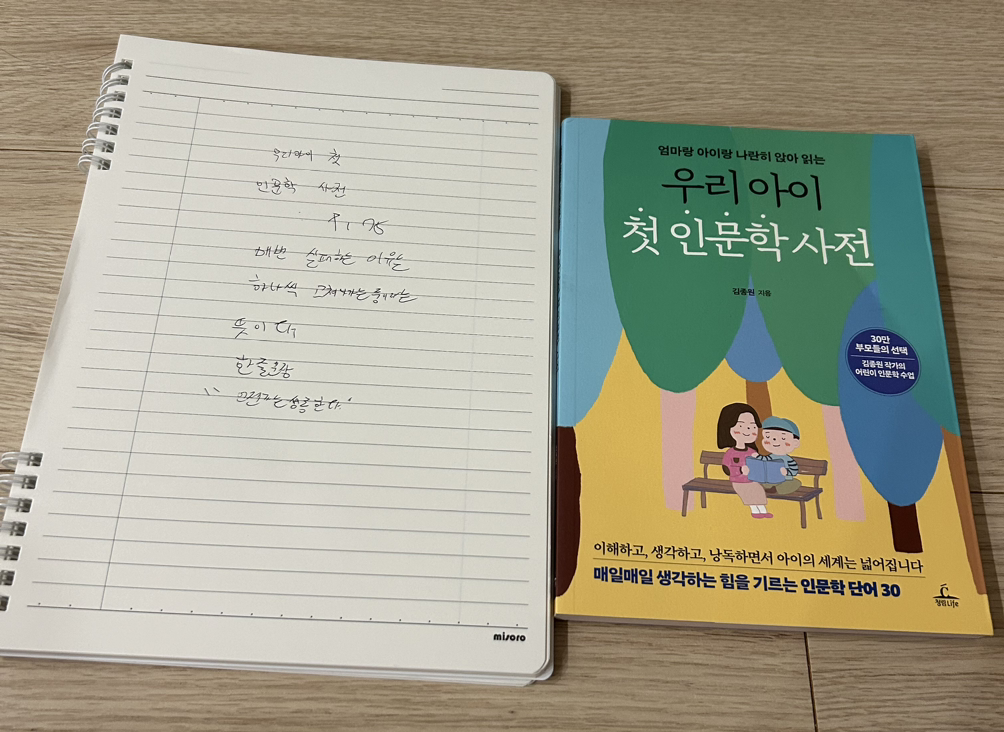 우리아이 첫
인문학 사전
P, 75
매번 실패하는 이유를
하나씩 고쳐나가는 중이라는
뜻이다
한줄문장
"노력하는 중이다."
misoro
엄마랑 아이랑 나란히 앉아 읽는
우리 아이
첫 인문학 사전
김종원 지음
30만
부모들의 선택
김종원 작가의
어린이 인문학 수업
이해하고, 생각하고, 낭독하면서 아이의 세계는 넓어집니다
매일매일 생각하는 힘을 기르는 인문학 단어 30
청림Life